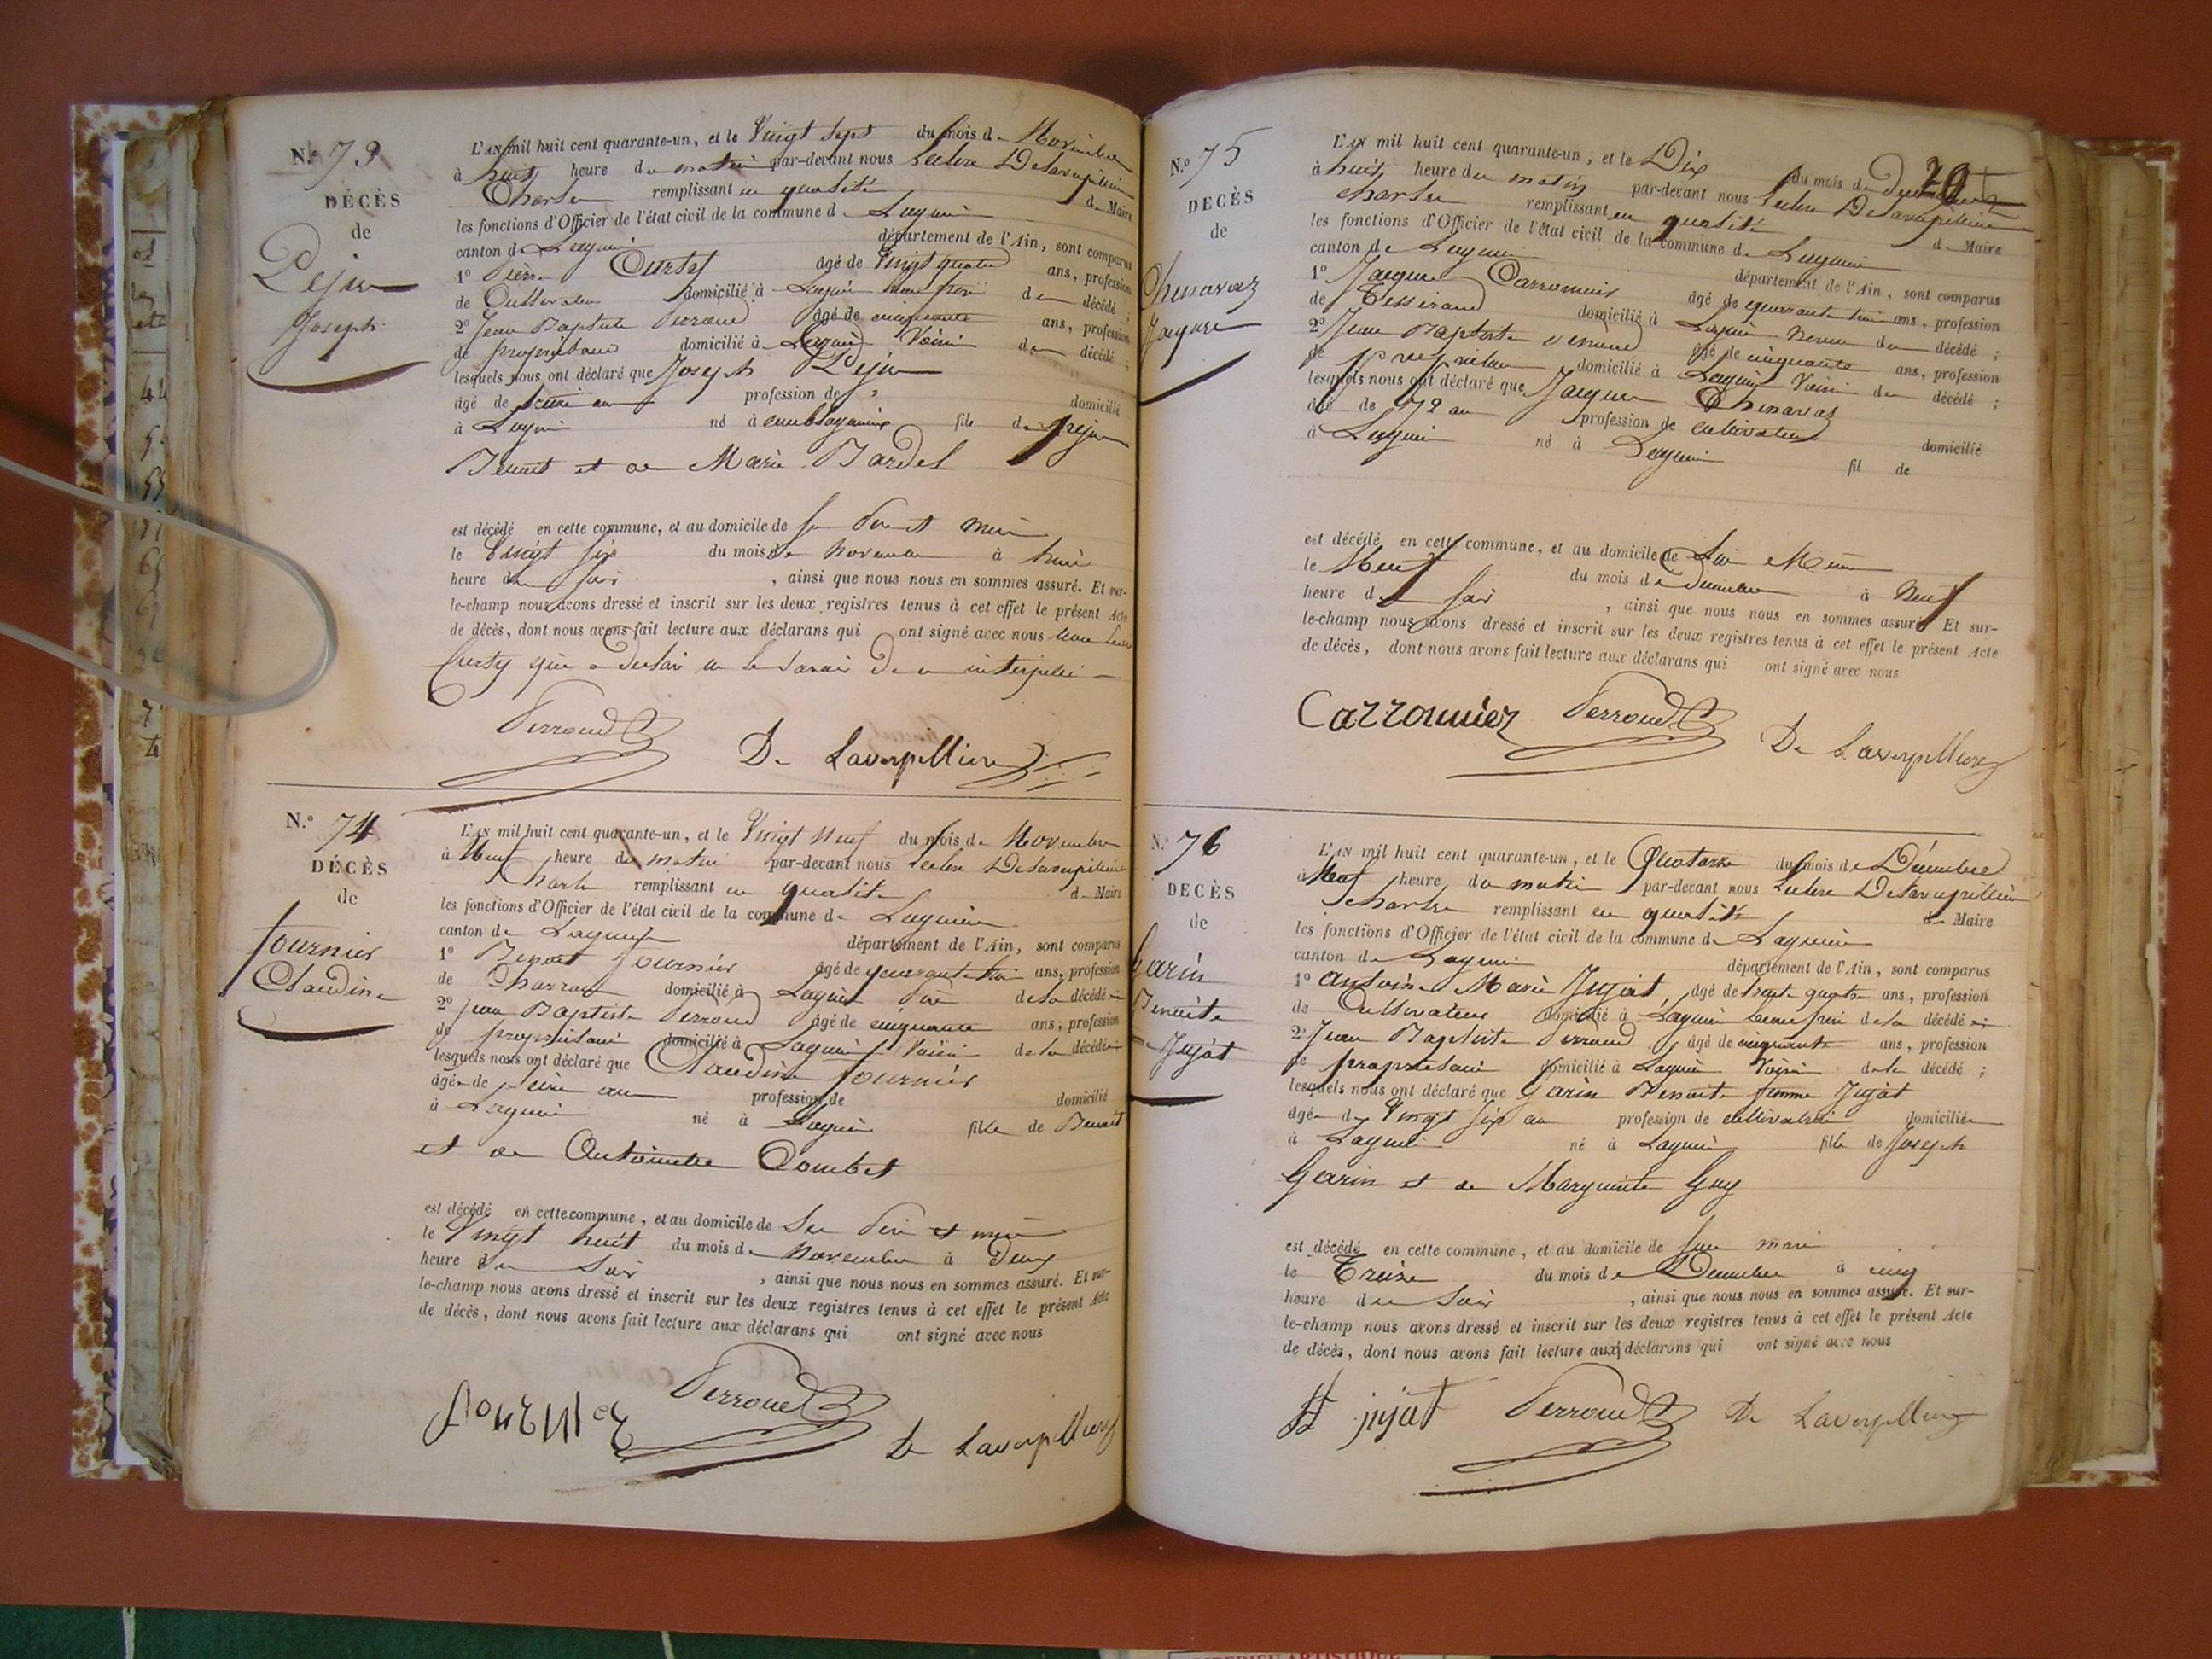 N.º 73
DÉCÈS
de
Peju
Joseph
L'AN mil huit cent quarante-un, et le Vingt Sept du mois de Novembre
à huit heure du matin par-devant nous Leclerc Delaverpillière
Charles remplissant en qualité de Maire
les fonctions d'Officier de l'état civil de la commune de Lagnieu
canton de Lagnieu département de l'Ain, sont comparus
1º Pierre Curty âgé de Vingt quatre ans, profession
de Cultivateur domicilié à Lagnieu beau frère du décédé ;
2º Jean Baptiste Perroud âgé de cinquante ans, profession
de propriétaire domicilié à Lagnieu Voisin du décédé ;
lesquels nous ont déclaré que Joseph Peju
âgé de ans profession de domicilié
à Lagnieu né à fils de peju
Benoit et de Marie Bardel
est décédé en cette commune, et au domicile de Ses Père et mère
le Vingt Six du mois de novembre à huit
heure du Soir , ainsi que nous nous en sommes assuré. Et sur-
le-champ nous avons dressé et inscrit sur les deux registres tenus à cet effet le présent Acte
de décès, dont nous avons fait lecture aux déclarans qui ont signé avec nous
Curty qui a déclaré ne le Savoir de ce interpellé
Perroud
De Laverpilliere
N.º 74
DÉCÈS
de
fournier
Claudine
L'AN mil huit cent quarante-un, et le Vingt Neuf du mois de Novembre
à Neuf heure du matin par-devant nous Leclerc Delaverpillière
Charles remplissant en qualité de Maire
les fonctions d'Officier de l'état civil de la commune de Lagnieu
canton de Lagnieu département de l'Ain, sont comparus
1º Benoit fournier âgé de ans, profession
de Charron domicilié à Lagnieu Père de la décédée
2º Jean Baptiste Perroud âgé de cinquante ans, profession
de propriétaire domicilié à Lagnieu Voisin de la décédée
lesquels nous ont déclaré que Claudine fournier
âgée de ans profession de domicilié
à Lagnieu né à Lagnieu fille de Benoit
et de Antoinette Combet
est décédé en cette commune, et au domicile de Ses Père et mère
le Vingt huit du mois de Novembre à Deux
heure du Soir , ainsi que nous nous en sommes assuré. Et sur-
le-champ nous avons dressé et inscrit sur les deux registres tenus à cet effet le présent Acte
de décès, dont nous avons fait lecture aux déclarans qui ont signé avec nous
fournier
Perroud
De Laverpilliere
N.º 75
DÉCÈS
de
Chenavaz
Jacques
20
L'AN mil huit cent quarante-un, et le Dix du mois de Décembre
à huit heure du matin par-devant nous Leclerc Delaverpillière
Charles remplissant en qualité de Maire
les fonctions d'Officier de l'état civil de la commune de Lagnieu
canton de Lagnieu département de l'Ain, sont comparus
1º Jacques Carronnier âgé de quarante trois ans, profession
de Tisserand domicilié à Lagnieu neveu du décédé ;
2º Jean Baptiste Perroud âgé de cinquante ans, profession
de propriétaire domicilié à Lagnieu Voisin du décédé ;
lesquels nous ont déclaré que Jacques Chenavaz
âgé de 72 ans profession de cultivateur domicilié
à Lagnieu né à Lagnieu fil de
est décédé en cette commune, et au domicile de Lui Même
le Neuf du mois de Décembre à Neuf
heure du Soir , ainsi que nous nous en sommes assuré. Et sur-
le-champ nous avons dressé et inscrit sur les deux registres tenus à cet effet le présent Acte
de décès, dont nous avons fait lecture aux déclarans qui ont signé avec nous
Carronnier
Perroud
De Laverpilliere
N.º 76
DÉCÈS
de
Garin
Benoite
fe Jujat
L'AN mil huit cent quarante-un, et le Quatorze du mois de Décembre
à Neuf heure du matin par-devant nous Leclerc Delaverpillière
Charles remplissant en qualité de Maire
les fonctions d'Officier de l'état civil de la commune de Lagnieu
canton de Lagnieu département de l'Ain, sont comparus
1º Antoine Marie Jujat âgé de trente quatre ans, profession
de Cultivateur domicilié à Lagnieu beau frère de la décédée
2º Jean Baptiste Perroud âgé de cinquante ans, profession
de propriétaire domicilié à Lagnieu Voisin de la décédé ;
lesquels nous ont déclaré que Garin Benoite femme Jujat
âgée de Vingt Six ans profession de cultivatrice domiciliée
à Lagnieu né à Lagnieu fille de Joseph
Garin et de Marguerite Guy
est décédé en cette commune, et au domicile de Son mari
le Treize du mois de Décembre à cinq
heure du Soir , ainsi que nous nous en sommes assuré. Et sur-
le-champ nous avons dressé et inscrit sur les deux registres tenus à cet effet le présent Acte
de décès, dont nous avons fait lecture aux déclarans qui ont signé avec nous
jujat
Perroud
De Laverpilliere